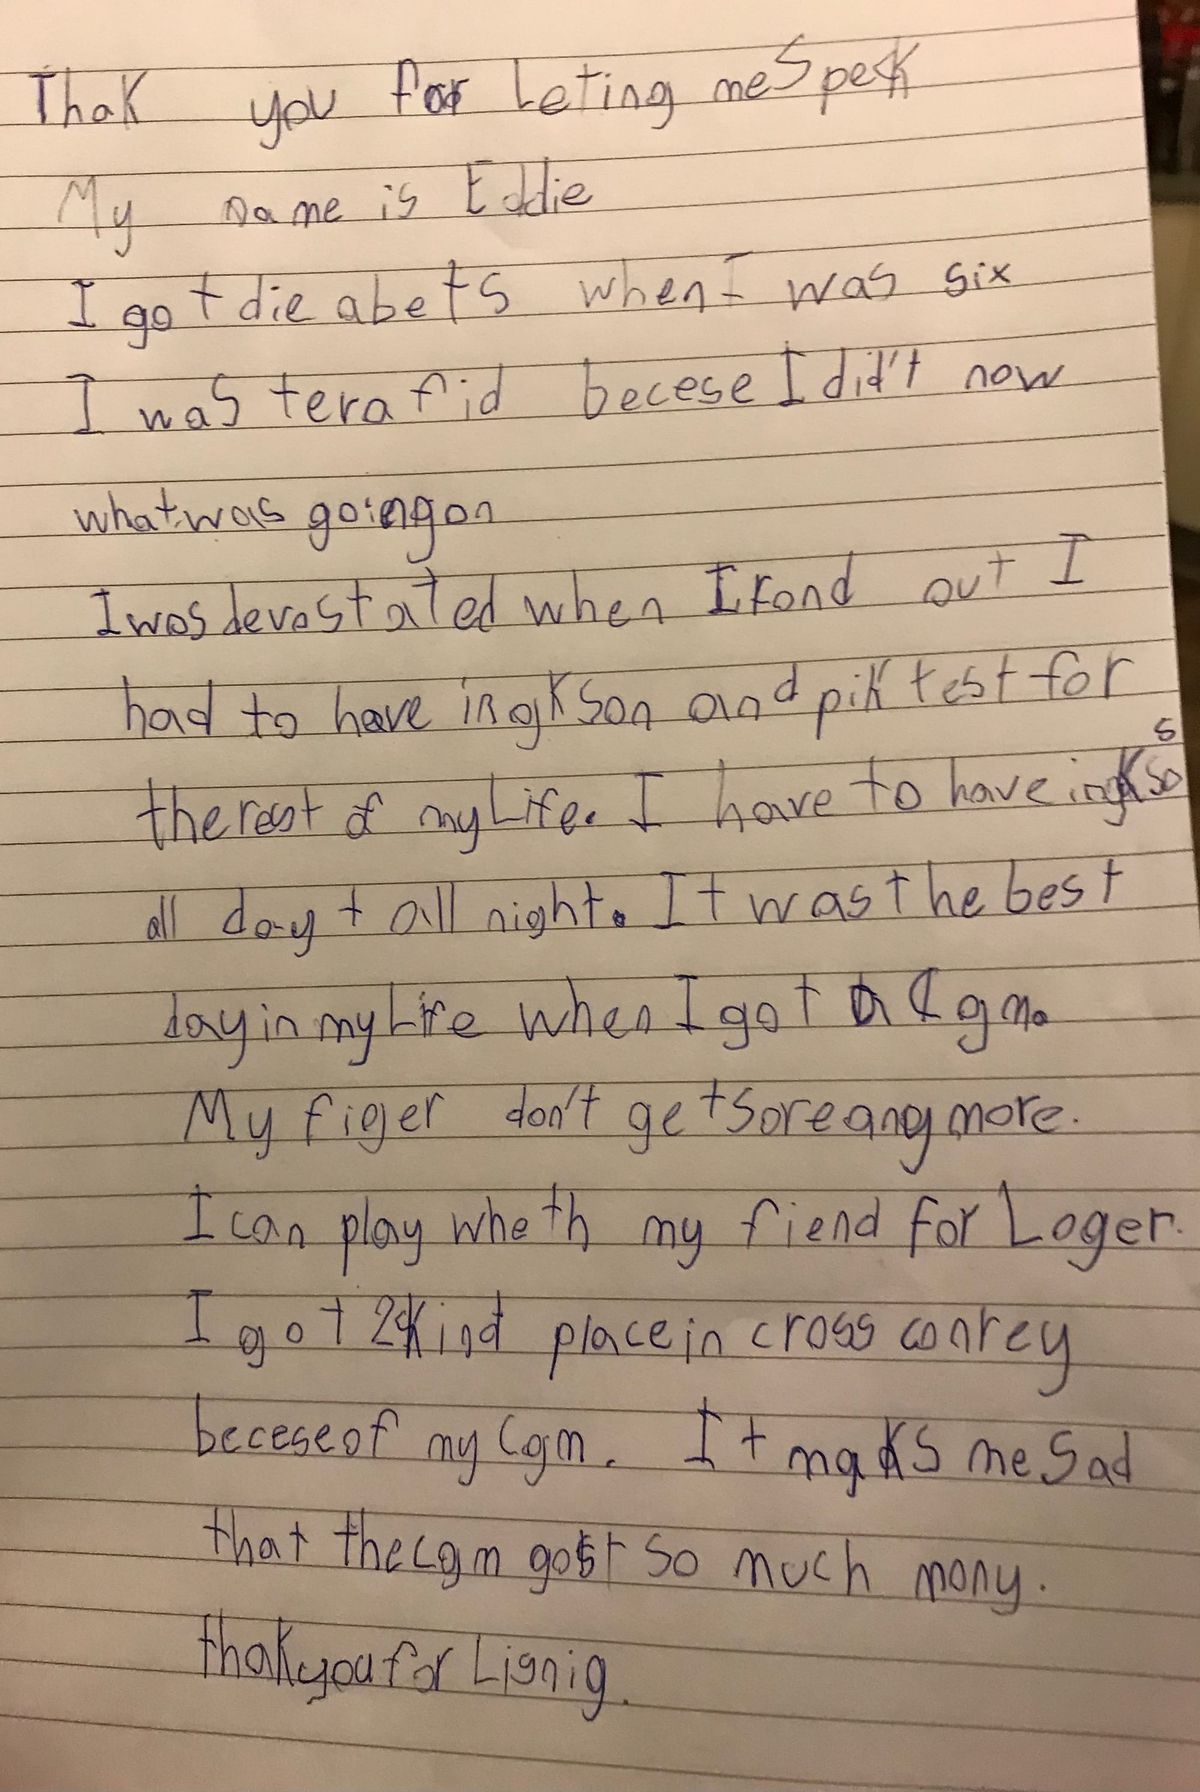 Thak you for Leting me Speak
My name is Eddie
I got die abets when I was six
I was terafid becese I did't now
what was going on
I was devastated when I fond out I
had to have ingkson and pik test for
the rest of my Life. I have to have ingkso
s
all day + all night. It was the best
day in my Life when I got a Cgm.
My figer don't get Sore any more.
I can play wheth my fiend for Loger.
I got 2kind place in cross conrey
becese of my Cgm. It maks me Sad
that the cgm gost so much mony.
thak you for Lignig.